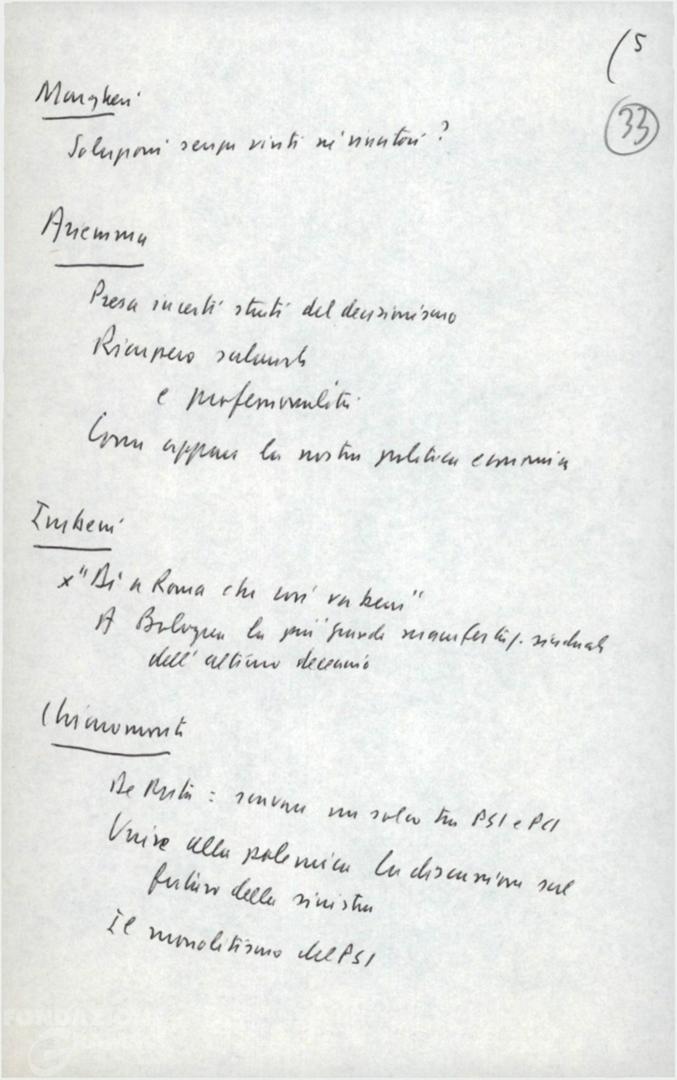 (5
33
Margheri
Soluzioni senza vinti né vincitori?
Ariemma
Presa in certi strati del decisionismo
Recupero salariale
e professionalità
Come appare la nostra politica economica
Imbeni
x "Di' a Roma che così va bene"
A Bologna la più grande manifestaz. sindacale
dell'ultimo decennio
Chiaromonte
De Mita: scavare un solco tra PSI e PCI
Unire alla polemica la discussione sul
futuro della sinistra
Il monolitismo del PSI
FONDAZIONE